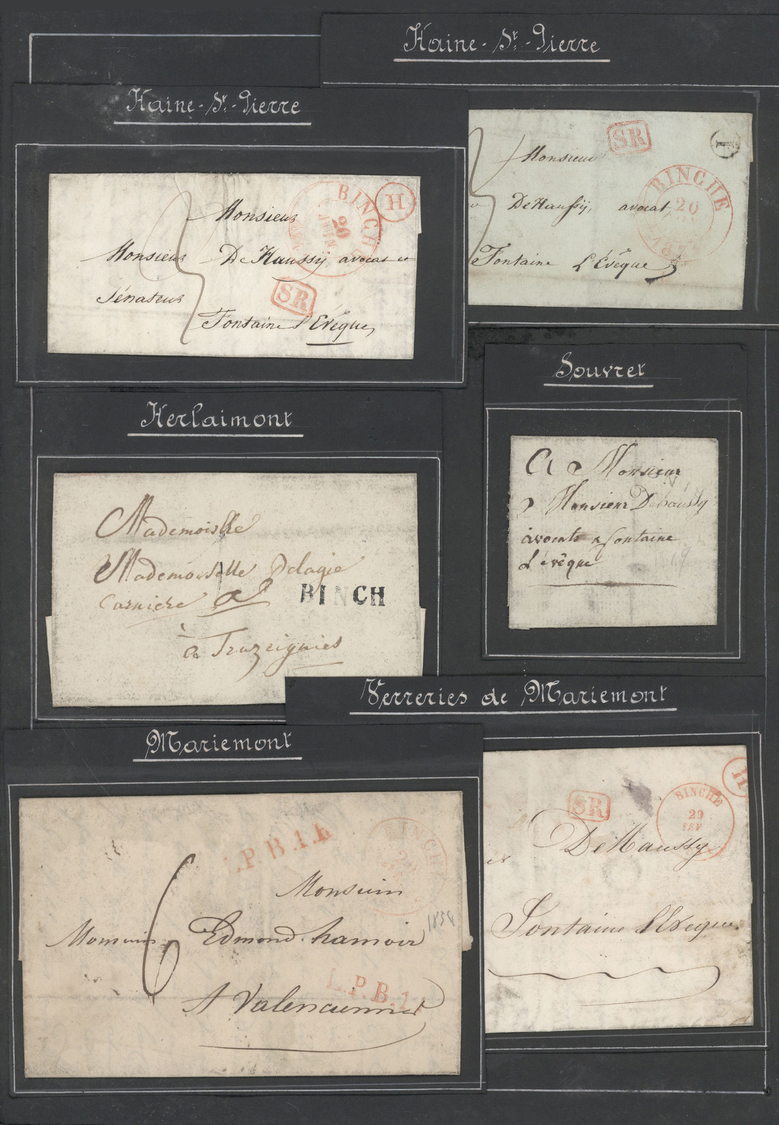 Haine-St-Pierre
Haine-St-Pierre
SR
Monsieur
BINCHE
20
DeHaussÿ, avocat,
Fontaine L'Evêque
BINCHE
20
JUIN
H
Monsieur
Monsieur De Haussÿ avocat et
Sénateur
SR
Fontaine l'Evêque,
Souvret
A Monsieur
Monsieur Dehaussy
avocat a fontaine
L'évêque
Herlaimont
Mademoiselle
Mademoiselle Pelagie
Carnière
BINCH
à Trazeignies
Verreries de Mariemont
SR
BINCHE
29
H
DeHaussy
Fontaine l'Evêque
Mariemont
L.P.B.1.R
Monsieur
1834
Monsieur Edmond hamoir
6
L.P.B.1.
A Valenciennes